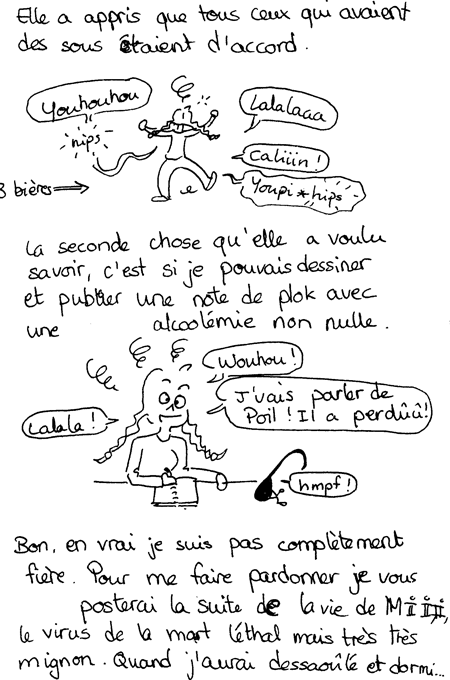 Elle a appris que tous ceux qui avaient
des sous étaient d'accord.
Youhouhou
hips
Lalalaaa
Caliiin !
Youpi * hips
3 bières
La seconde chose qu'elle a voulu
savoir, c'est si je pouvais dessiner
et publier une note de plok avec
une alcoolémie non nulle.
Wouhou !
J'vais parler de
Poil ! Il a perdûû!
Lalala !
hmpf !
Bon, en vrai je suis pas complètement
fière. Pour me faire pardonner je vous
posterai la suite de la vie de Miiii,
le virus de la mort léthal mais très très
mignon. Quand j'aurai dessaoûlé et dormi...